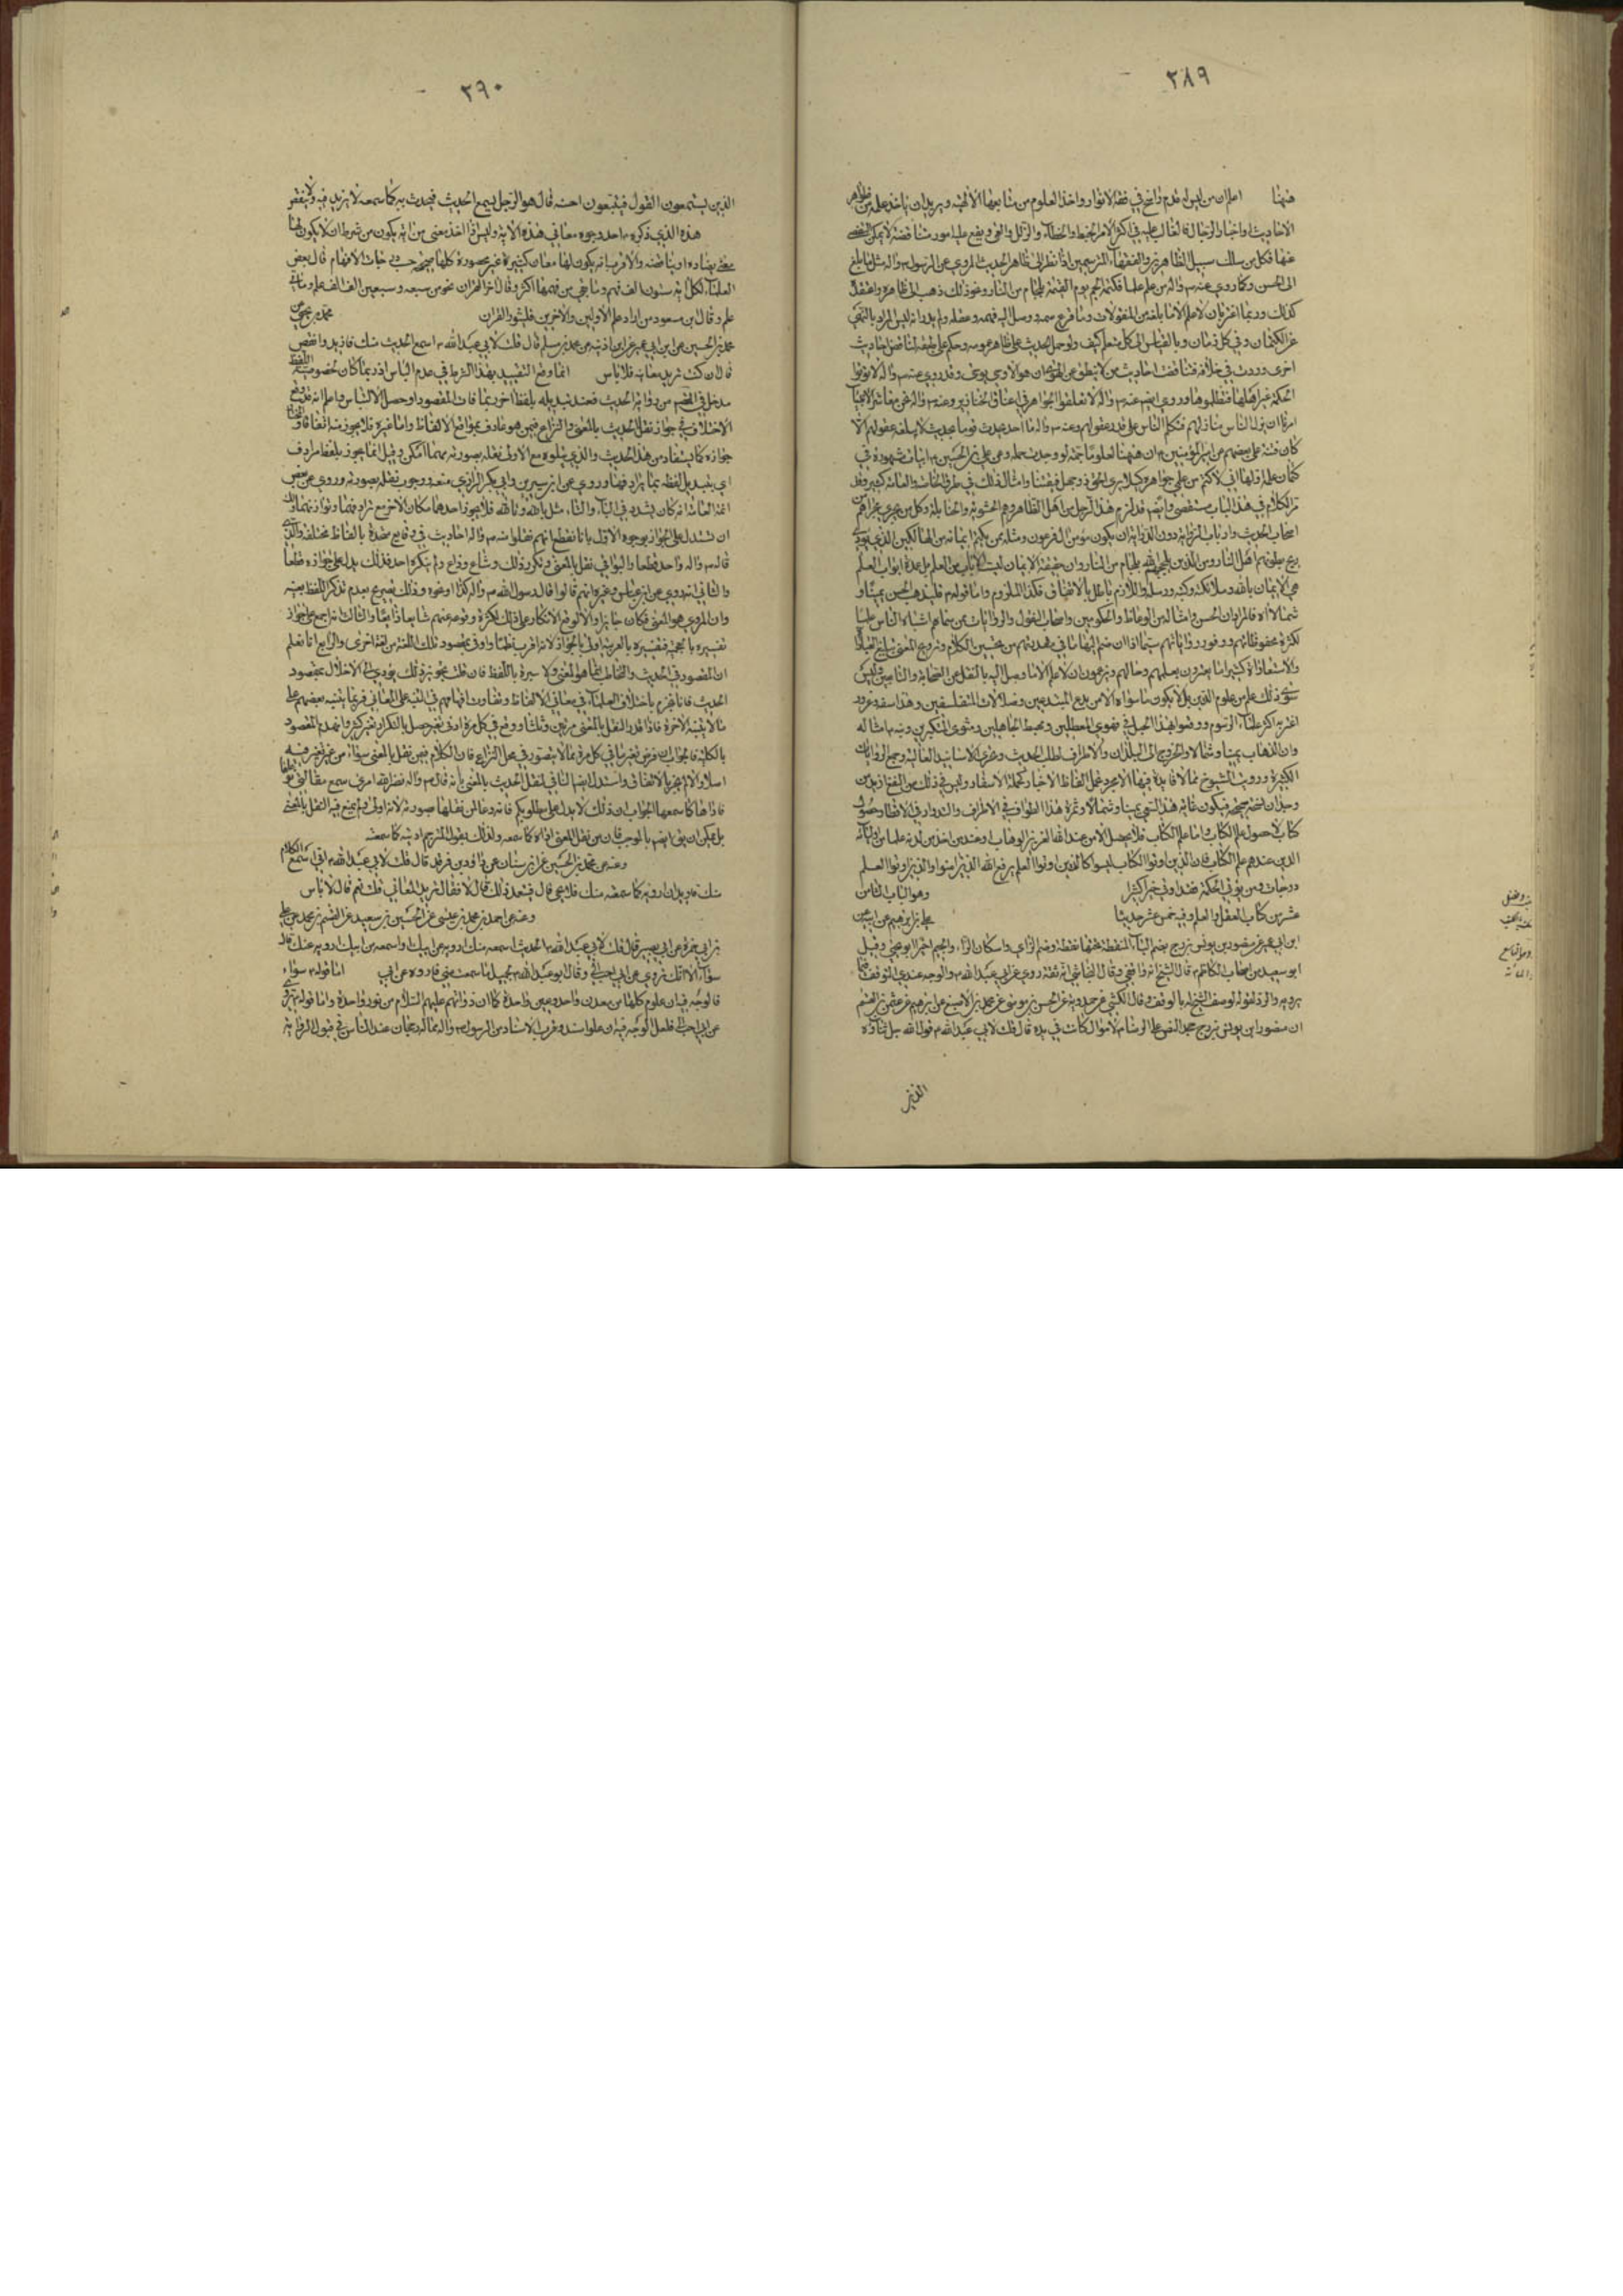 ٣٨٩
فهنا اعلم ان من ليس له قدم راسخ في فقه الانوار واخذ العلوم من منابعها الالهية ويريد ان ياخذ علمه من ظواهر
الاحاديث واخبار الرجال فالغالب عليه في اكثر الامر الخبط والخطاء والزلل والغي ويقع عليه امور متناقضة لا يمكن التفصي
عنها فكل من سلك سبيل الظاهريين والفقهاء الرسميين اذا نظر الى ظاهر الحديث المروي عن الرسول ص واله مثل ما بلغ
الى الحسن وكما روي عنه ص واله من علم علما فكتمه الجم يوم القيمة بلجام من النار ونحو ذلك ذهب الى ظاهره واعتقد
كذلك وربما اغتر بان لا علم الا ما بلغه من المنقولات وما قرع سمعه ووصل اليه فهمه وعقله ولم يدر انه ليس المراد بالنهي
عن الكتمان وفي كل زمان وبالقياس الى كل متعلم كيف ولو حمل الحديث على ظاهر عمومه وحكم على
اخرى وردت في خلافه فتناقضت احاديث من لا ينطق عن الهوى ان هو الا وحي يوحى وقد روي عنه ص واله لا تؤتوا
الحكمة غير اهلها فتظلموها وروي ايضا عنه ص واله لا تعلقوا الجواهر في اعناق الخنازير وعنه ص واله نحن معاشر الانبياء
امرنا ان ننزل الناس منازلهم فنكلم الناس على قدر عقولهم وعنه ص واله ما احد يحدث قوما بحديث لا يبلغه عقولهم الا
كان فتنة على بعضهم عن امير المؤمنين ع ان ههنا لعلوما جمة لو وجدت لها حملة وعن علي بن الحسين ع ابيات مشهورة في
كتمان علمه اولها اني لاكتم من علمي جواهره كيلا يرى الحق ذو جهل فيفتتنا وامثال ذلك في طرق الخاصة والعامة كثير وقد
مر الكلام في هذا الباب مستقصى وايضا قد لزم هذا الرجل من اهل الظاهر وهم الحشوية والحنابلة وكل من يجري مجراهم من
اصحاب الحديث وارباب الرواية دون الدراية ان يكون مؤمن ال فرعون ومثله ممن يكتم ايمانه من الهالكين الذين يؤذي
ريح بطونهم اهل النار ومن الذين يلجمهم الله بلجام من النار وان حقيقة الايمان ليست الا باب من العلم بل عمدة ابواب العلم
هي الايمان بالله وملائكته وكتبه ورسله واللازم باطل بالاتفاق فكذا الملزوم واما قوله ع فليذهب الحسن يمينا و
شمالا اه فالمراد ان الحسن وامثاله من الوعاظ والحكويين واصحاب النقول والروايات ممن سماهم اشباه الناس علما
لكثرة محفوظاتهم ووفور رواياتهم سيما اذا ان ضم اليها ما في عهدتهم من تحسين الكلام وترويج المعنى بمبالغ العبارات
والاستعارة كثيرا ما يغترون بعلمهم وحالهم ويزعمون ان لا علم الا ما وصل اليه بالنقل عن الصحابة والتابعين وليس
سوى ذلك علم من علوم الدين بل لا يكون ما سواه الا من بدع المبتدعين وضلالات المتفلسفين وهذا سفه وغرور
اغتر به اكثر علماء الرسوم ووقعوا بهذا الجهل في مهوى المعطلين ومحيط الجاهلين ومثوى المتكبرين ونبه ع امثاله
وان الذهاب يمينا وشمالا والخروج الى البلدان والاطراف لطلب الحديث وتحري الاسانيد العالية وجمع الروايات
الكثيرة ورؤيت الشيوخ مما لا فائدة فيها الا مجرد تحمل الفاظ الاخبار كحمل الاسفار وليس في ذلك من النفع ازيد من
كتاب لا حصول علم الكتاب واما علم الكتاب فلا يحصل الا من عند الله العزيز الوهاب او عند من اخذ من لدنه علما من اوليائه
الذين عندهم علم الكتاب فان الذين اوتوا الكتاب ليسوا كالذين اوتوا العلم يرفع الله الذين امنوا والذين اوتوا العلم
درجات ومن يؤتى الحكمة فقد اوتي خيرا كثيرا وهو الباب الثامن
عشر من كتاب العقل والعلم وفيه خمس عشر حديثا علي بن ابراهيم عن ابيه عن
ابن ابي عمير عن منصور بن يونس بزرج بضم الباء المنقطة تحتها نقطة وضم الزاي واسكان الراء والجيم اخيرا ابو يحيى وقيل
ابو سعيد من اصحاب الكاظم ع قال الشيخ انه واقفي وقال النجاشي انه ثقة روى عن ابي عبد الله ع والوجه عندي التوقف فيما
يرويه والرد لقوله لوصف الشيخ له بالوقف وقال الكشي عن حمدويه عن الحسن بن موسى عن محمد بن الاصبغ عن ابراهيم عن عثمان بن القسم
ان منصور بن يونس بزرج جحد النص على الرضا ع لاموال كانت في يده قال قلت لابي عبد الله ع قول الله جل ثناؤه
الذين
٣٩٠
الذين يستمعون القول فيتبعون احسنه قال هو الرجل يسمع الحديث فيحدث به كما سمعه لا يزيد فيه ولا ينقص
هذه الذي ذكره ع احد وجوه معاني هذه الاية وليس اذا اخذ معنى من اية يكون من شرط ان لا يكون لها
معنى يضاده او يناقضه والاقرب انه يكون لها معان كثيرة غير محصورة كلها صحيحة حسب درجات الافهام قال بعض
العلماء لكل اية ستون الف فهم وما بقي من فهمها اكثر وقال اخر القران يحوي سبعة وسبعين الف الف علم ومائتي
علم وقال ابن مسعود من اراد علم الاولين والاخرين فليثور القران محمد بن يحيى عن
محمد بن الحسين عن ابن ابي عمير عن ابن اذينة عن محمد بن مسلم قال قلت لابي عبد الله ع اسمع الحديث منك فازيد وانقص
قال ان كنت تريد معانيه فلا باس انما وقع التقييد بهذا الشرط في عدم الباس اذ ربما كان لخصوصية اللفظ
مدخل في الفهم من رواية الحديث فعند تبديله بلفظ اخر ربما فات المقصود او حصل الالتباس واعلم انه قد وقع
الاختلاف في جواز نقل الحديث بالمعنى والنزاع فيمن هو عارف بمواقع الالفاظ واما غيره فلا يجوز منه اتفاقا والحق
جوازه كما يستفاد من هذا الحديث والذي يتلوه مع الاولى نقله بصورته مهما امكن وقيل انما يجوز بلفظ مرادف
اي بتبديل لفظه بما يرادفها وروي عن ابن سيرين وابي بكر الرازي منعه ووجوب نقله بصورته وروي عن بعض
ائمة العامة انه كان يشدد في الباء والتاء مثل بالله وتالله فلا يجوز احدهما مكان الاخر مع ترادفهما وتوازنهما ولنا
ان نستدل على الجواز بوجوه الاول بانا نقطع انهم نقلوا عنه ص واله احاديث في وقايع متحدة بالفاظ مختلفة والذي
قاله ص واله واحد قطعا والبواقي نقل بالمعنى وتكرر ذلك وشاع وذاع ولم ينكره احد فذلك يدل على جوازه قطعا
والثاني انه روي عن ابن عباس وغيره انهم قالوا قال رسول الله ص واله كذا او نحوه وذلك تصريح بعدم تذكر اللفظ بعينه
وان المروي هو المعنى فكان جايزا والا لوقع الانكار على ذلك لكثرة وقوعه عنهم شايعا ذايعا والثالث انه اجمع على جواز
تفسيره بالعجمية فتفسيره بالعربية اولى بالجواز لانه اقرب نظما واوفى بمقصود تلك اللغة من لغة اخرى والرابع انا نعلم
ان المقصود في الحديث والتخاطب انما هو المعنى ولا عبرة باللفظ فان قلت تجويز ذلك يؤدي الى الاخلال بمقصود
الحديث فانا نجزم باختلاف العلماء في معاني الالفاظ وتفاوت افهامهم في التنبه على المعاني فربما يتنبه بعضهم على
ما لا يتنبه الاخر فاذا قدر النقل بالمعنى مرتين وثلثا ووقع في كل مرة ادنى تغير حصل بالتكرار تغير كثير وانهدم المقصود
بالكلية فالجواب ان فرض تغير ما في كل مرة مما لا يتصور في محل النزاع فان الكلام فيمن نقل بالمعنى سواء من غير تغير فيه
اصلا والا لم يجز بالاتفاق واستدل ايضا النافي لنقل الحديث بالمعنى بانه قال ص واله نضر الله امرئ سمع مقالتي فوعاها
فاداها كما سمعها الجواب ان ذلك لا يدل على مطلوبكم فانه دعا لمن نقلها بصورته لانه اولى ولم يمنع فيه النقل بالمعنى
بل يمكن ان يق ايضا بالموجب فان من نقل المعنى اداه كما سمعه ولذلك يقول المترجم اديته كما سمعته
وعنه عن محمد بن الحسين عن ابن سنان عن داود بن فرقد قال قلت لابي عبد الله ع اني اسمع الكلام
منك فاريد ان ارويه كما سمعته منك فلا يجيء قال فتتعمد ذلك قال لا فقال تريد المعاني قلت نعم قال لا باس
وعنه عن احمد بن محمد بن عيسى عن الحسين بن سعيد عن القسم بن محمد عن علي
بن ابي حمزة عن ابي بصير قال قلت لابي عبد الله ع الحديث اسمعه منك ارويه عن ابيك او اسمعه من ابيك ارويه عنك قال
سواء الا انك ترويه عن ابي احب الي وقال ابو عبد الله ع لجميل ما سمعت مني فاروه عن ابي اما قوله ع سواء
فالوجه فيه ان علومهم كلها من معدن واحد وعين واحدة كما ان ذواتهم عليهم السلام من نور واحدة واما قوله ترويه
عن ابي احب الي فلعل الوجه فيه ان علو السند وقرب الاسناد من الرسول ص واله مما له رجحان عند الناس في قبول الرواية